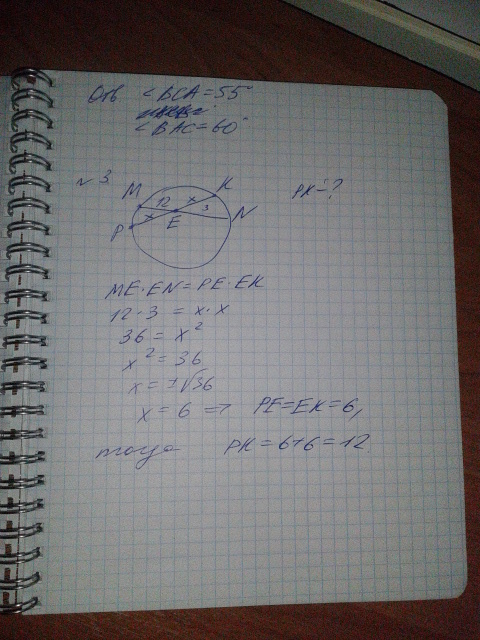 Отв ∠BCA=55°
∠BAC=60°
№3.
M K
12 x
x 3
P E N
PK=?
ME·EN=PE·EK
12·3 = x·x
36 = x²
x² = 36
x = ±√36
x = 6 => PE=EK=6,
тогда PK=6+6=12